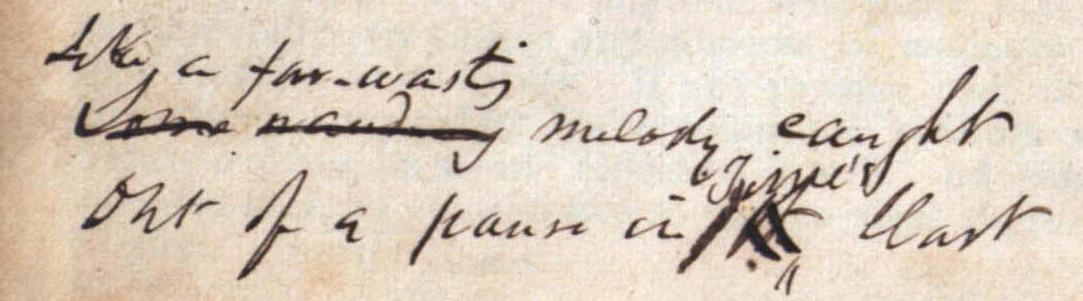 Like a far-wasting
Some melody caught
Time's
Out of a pause in blast